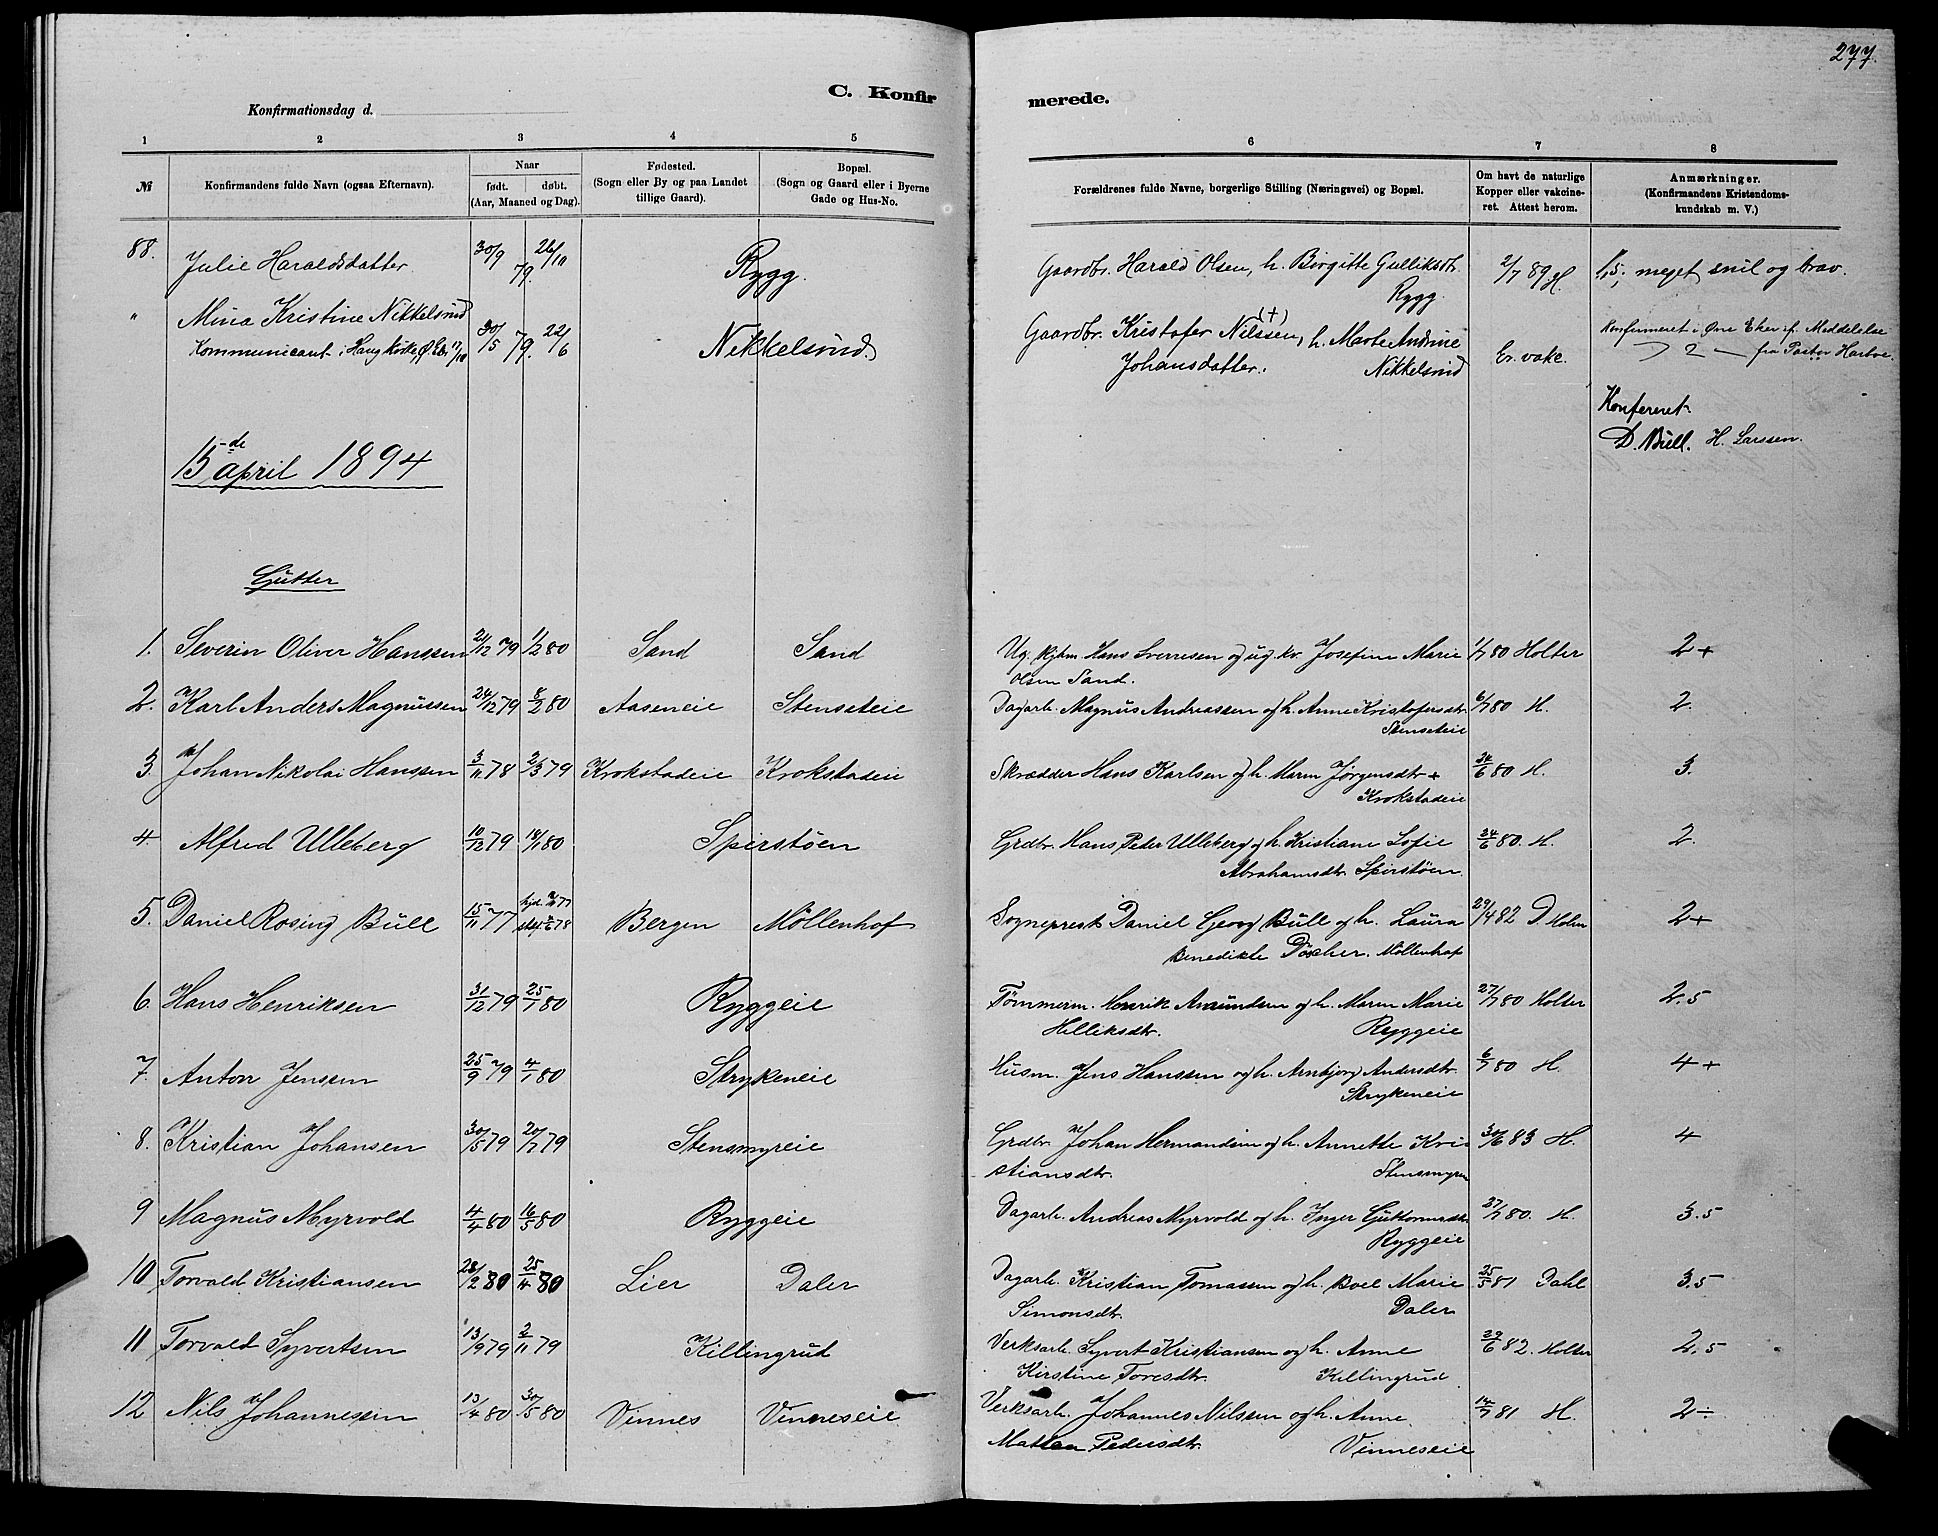 277.
C. Konfir
merede.
Konfirmationsdag d.
1 2 3 4 5
6 7 8
№ Konfirmandens fulde Navn (ogsaa Efternavn). Naar født. døbt. (Aar, Maaned og Dag). Fødested. (Sogn eller By og paa Landet tillige Gaard). Bopæl. (Sogn og Gaard eller i Byerne Gade og Hus-No.
Forældrenes fulde Navne, borgerlige Stilling (Næringsvei) og Bopæl. Om havt de naturlige Kopper eller vakcineret. Attest herom. Anmærkninger. (Konfirmandens Kristendomskundskab m. V.)
88. Julie Haraldsdatter 30/9 79. 26/10 Rygg. Gaardbr. Harald Olsen, h. Birgitte Gulliksdtr. 2/7 89 H. 1,5; meget snil og brav.
Rygg.
" Mina Kristine Nikkelsrud 30/5 79. 22/6 Nikkelsrud Gaardbr. Kristofer Nilssen, (+) h. Marte Andrine Er. vakc. Konfirmeret i Øvre Eker if. Meddelelse
Kommunicant i Haug Kirke Ø. Eker 17/10 Johansdatter. Nikkelsrud 2 fra Pastor
Konfereret
D. Bull. H. Larssen.
15de april 1894
Gutter
1. Severin Oliver Hanssen 21/12 79 1/2 80 Sand Sand Ug. Hans Sverresen og ug. kv. Josefine Marie 1/7 80 Holter 2+
Olsen Sand.
2. Karl Anders Magnussen 24/12 79 8/2 80 Aaseneie Stenseteie Dagarb. Magnus Andreassen og h. Anne Kristofersdtr. 6/7 80 H. 2.
Stenseteie
3. Johan Nikolai Hanssen 3/11 78 2/3 79 Krokstadeie Krokstadeie Skrædder Hans Karlsen og h. Maren Jørgensdtr + 24/6 80 H. 3.
Krokstadeie
4. Alfred Ulleberg 10/12 79 18/1 80 Spirstøen Grdbr. Hans Peter Ulleberg og h. Kristiane Sofie 24/6 80. H. 2.
Abrahamsdtr. Spirstøen.
5. Daniel Rosing Bull 15/11 77 hjd. 77 78 Bergen Möllenhof Sogneprest Daniel Georg Bull og h. Laura 29/4 82 D Holm 2+
Benedikte Döscher. Möllenhof
6. Hans Henriksen 31/12 79 25/1 80 Ryggeie Tømmerm. Henrik Amundsen og h. Maren Marie 27/7 80 Holter 2.5
Helliksdtr. Ryggeie
7. Anton Jenssen 25/9 79 4/1 80 Strykeneie Husm. Jens Hanssen og h. Arnbjørg Andersdtr. 6/7 80 H. 4+
Strykeneie
8. Kristian Johansen 30/5 79 20/7 79 Stensmyreie Grdbr. Johan Hermandsen og h. Annette Kri- 30/6 83 H. 4
stiansdtr. Stensmyren
9 Magnus Myrvold 4/4 80 16/5 80 Ryggeie Dagarb. Andreas Myrvold og h. Inger Guttormsdtr. 27/7 80. H. 3.5
Ryggeie
10 Torvald Kristiansen 28/2 80 25/4 80 Lier Daler Dagarb. Kristian Tomassen og h. Boel Marie 25/5 81 Dahl 3.5
Simonsdtr. Daler
11 Torvald Syvertsen 13/9 79 2/11 79 Killingrud Verksarb. Syvert Kristiansen og h. Anne 29/6 82. Holter 2.5
Kirstine Toresdtr. Killingrud
12 Nils Johannessen 13/4 80 30/5 80 Vinnes Vinneseie Verksarb. Johannes Nilssen og h. Anne 14/7 81 H. 2÷
Mattea Pedersdtr. Vinneseie